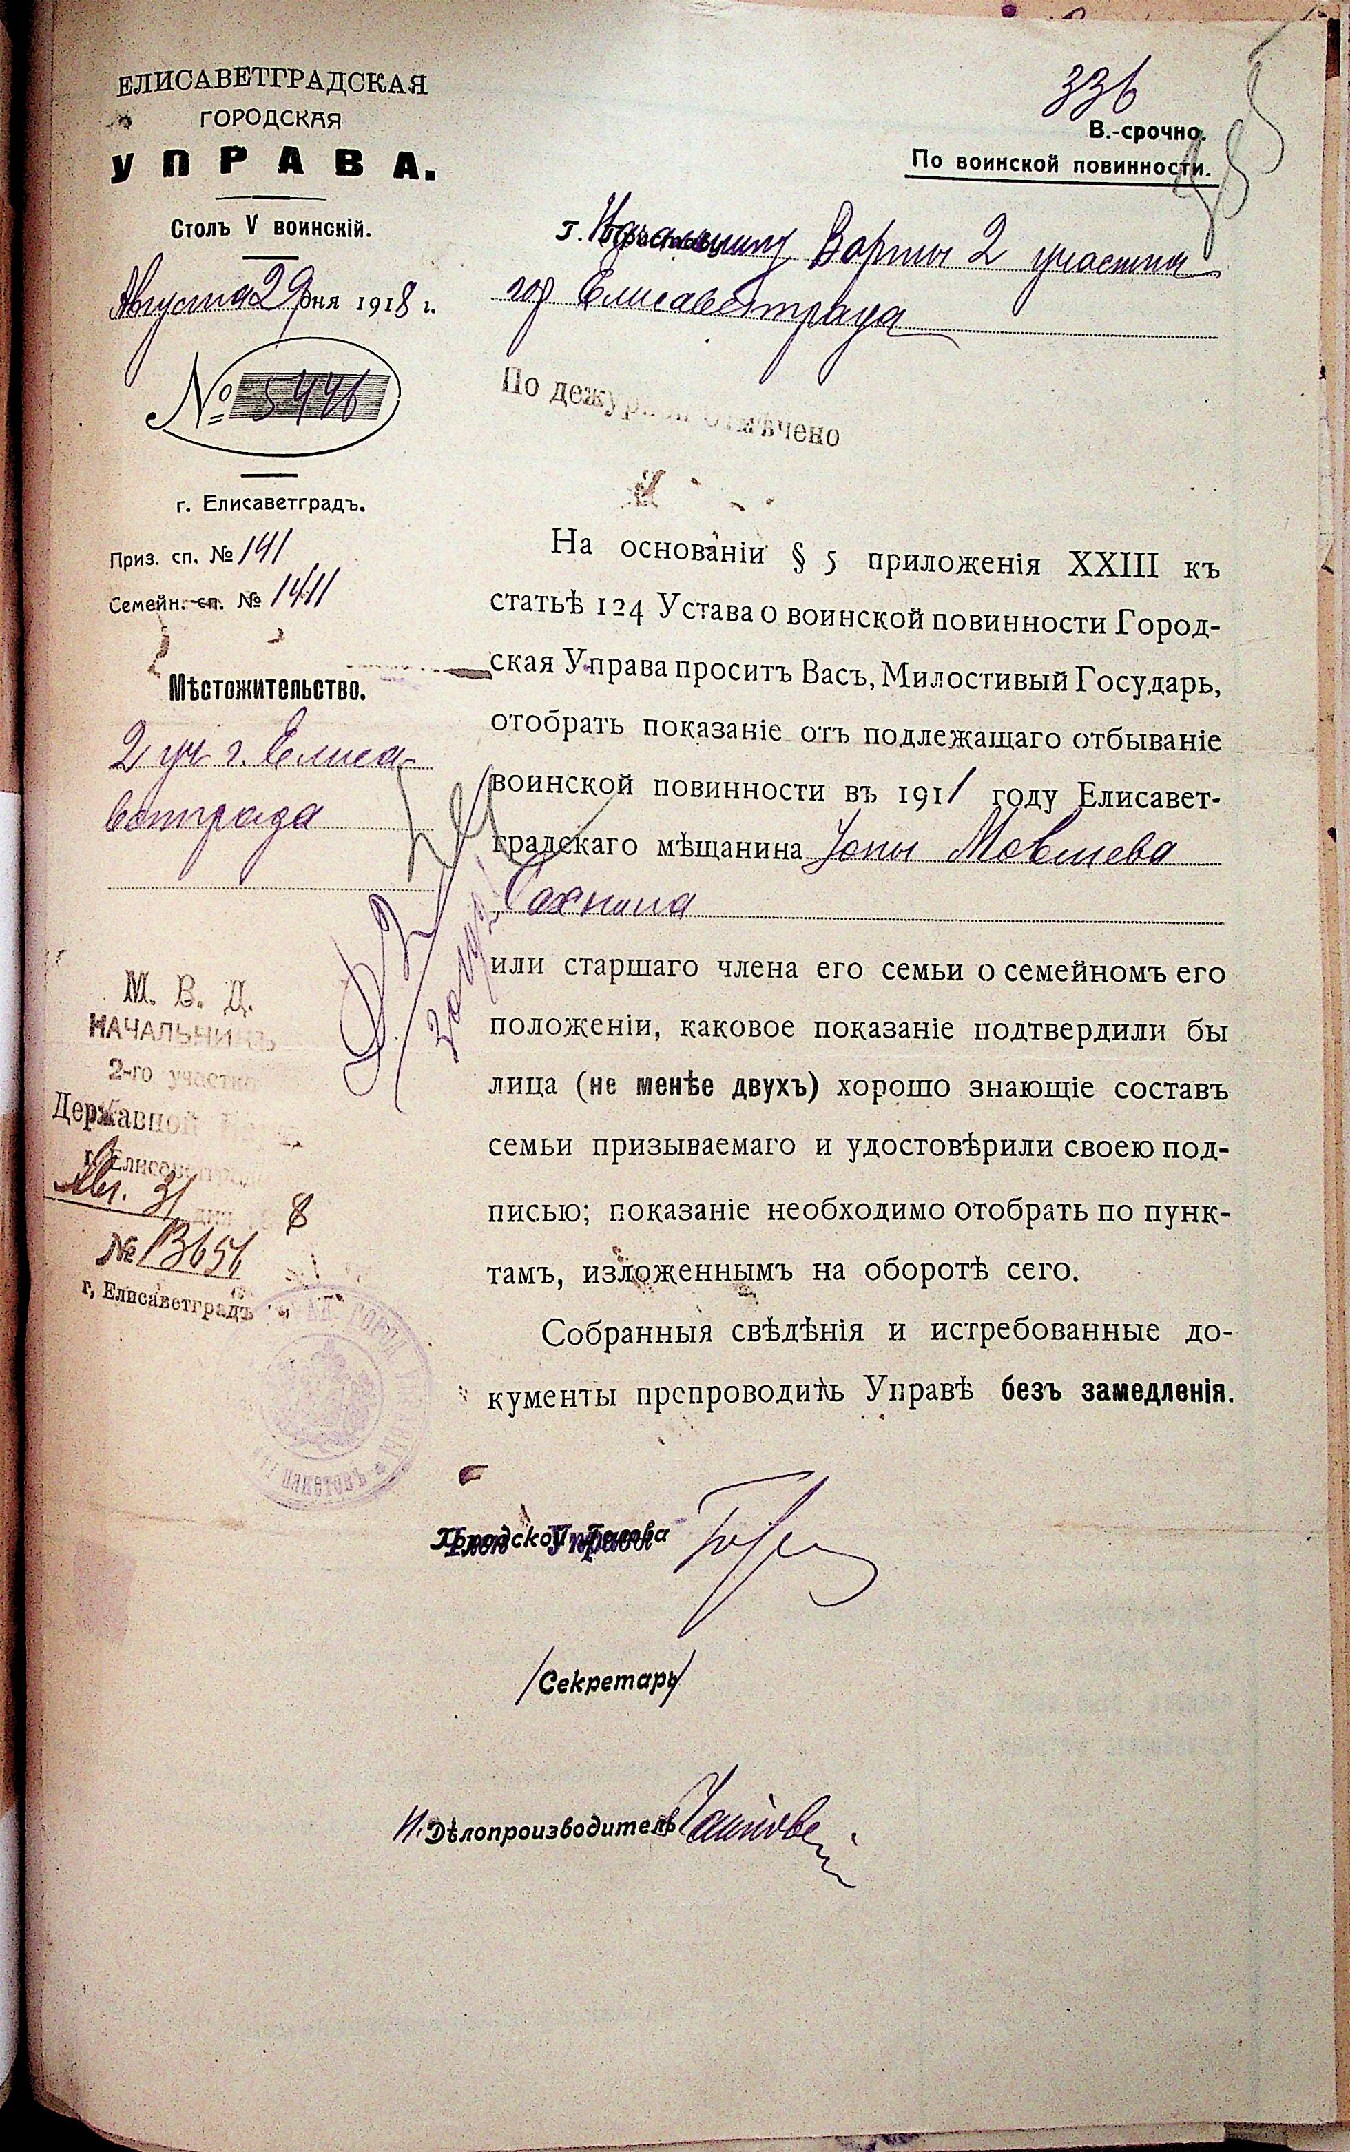 336
В.-срочно.
По воинской повинности.
ЕЛИСАВЕТГРАДСКАЯ
ГОРОДСКАЯ
УПРАВА.
Столъ V воинскій.
Августа 29 дня 1918 г.
№ 5446
г. Елисаветградъ.
Приз. сп. № 141
Семейн. сп. № 1411
Мѣстожительство.
2 уч. г. Елиса-
ветграда
М. В. Д.
НАЧАЛЬНИКЪ
2-го участка
Державной
г. Елисаветграда
Авг. 31 дня 8
№ 13656
г, Елисаветградъ
пакетовъ
Г. Начальнику Варты 2 участка
гор Елисаветграда
По дежурной отмѣчено
На основаніи § 5 приложенія XXIII къ
статьѣ 124 Устава о воинской повинности Город-
ская Управа проситъ Васъ, Милостивый Государь,
отобрать показаніе отъ подлежащаго отбываніе
воинской повинности въ 1911 году Елисавет-
градскаго мѣщанина Іопы Мовшева
Сахнина
или старшаго члена его семьи о семейномъ его
положеніи, каковое показаніе подтвердили бы
лица (не менѣе двухъ) хорошо знающіе составъ
семьи призываемаго и удостовѣрили своею под-
писью; показаніе необходимо отобрать по пунк-
тамъ, изложеннымъ на оборотѣ сего.
Собранныя свѣдѣнія и истребованные до-
кументы препроводить Управѣ безъ замедленія.
Городской Голова
Член Управы
/Секретарь/
И. Дѣлопроизводитель